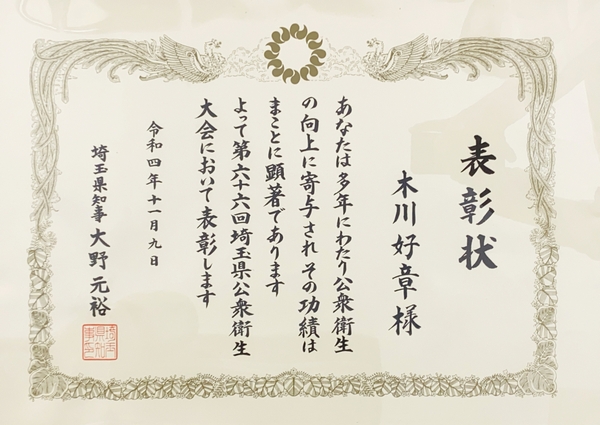 表彰状
木川好章様
あなたは多年にわたり公衆衛生
の向上に寄与されその功績は
まことに顕著であります
よって第六十六回埼玉県公衆衛生
大会において表彰します
令和四年十一月九日
埼玉県知事 大野元裕